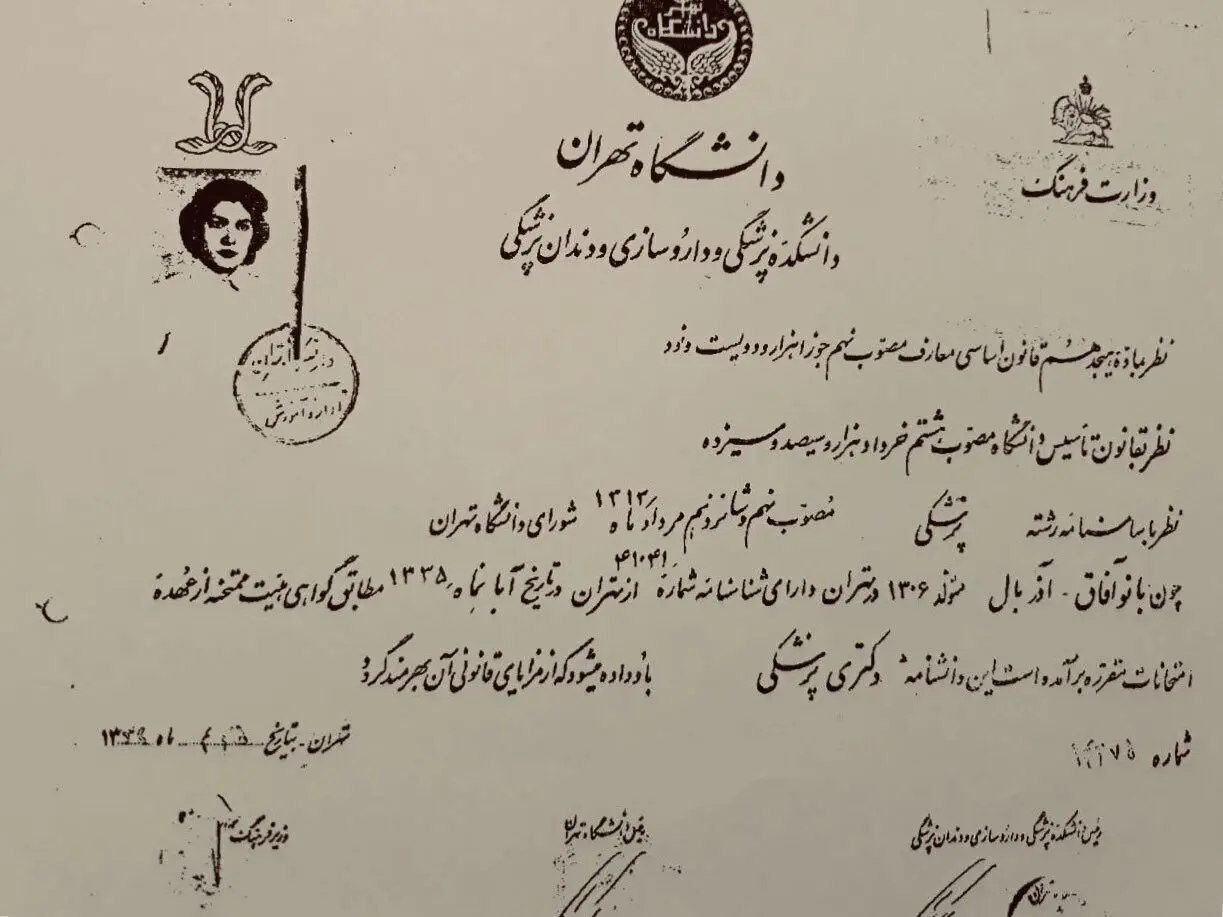 دانشگاه تهران
وزارت فرهنگ
دانشگاه تهران
دانشکده پزشکی و داروسازی و دندان پزشکی
نظر بماده هیجدهم قانون اساسی معارف مصوب نهم جوزا هزار و دویست و نود
نظر بقانون تأسیس دانشگاه مصوب هشتم خرداد هزار و سیصد و سیزده
نظر باساسنامه رشته پزشکی مصوب نهم و شانزدهم مرداد ماه ۱۳۱۳ شورای دانشگاه تهران
چون بانو آفاق - آذر بال متولد ۱۳۰۶ در تهران دارای شناسنامه شماره ۴۱۰۴۱ از تهران در تاریخ آبانماه ۱۳۳۵ مطابق گواهی هیئت ممتحنه از عهده
امتحانات مقرره برآمده است این دانشنامه دکتری پزشکی باو داده میشود که از مزایای قانونی آن بهره‌مند گردد
شماره
تهران - بتاریخ ماه
رئیس دانشکده پزشکی و داروسازی و دندان پزشکی
رئیس دانشگاه تهران
وزیر فرهنگ
اداره آموزش